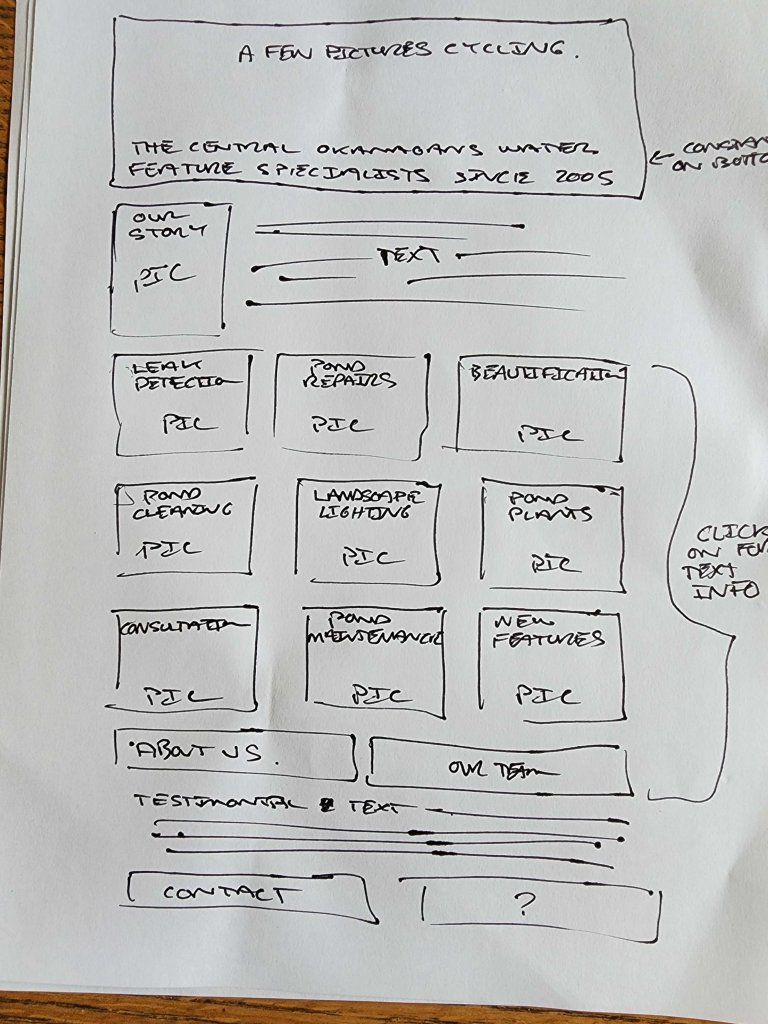 A FEW PICTURES CYCLING.
THE CENTRAL OKANAGANS WATER
FEATURE SPECIALISTS SINCE 2005
ON
OUR
STORY
PIC
TEXT
LEAK
DETECTION
PIC
POND
REPAIRS
PIC
BEAUTIFICATION
PIC
POND
CLEANING
PIC
LANDSCAPE
LIGHTING
PIC
POND
PLANTS
PIC
CLICK
ON FOR
TEXT
INFO
CONSULTATION
PIC
POND
MAINTENANCE
PIC
NEW
FEATURES
PIC
ABOUT US.
OUR TEAM
TESTIMONIAL TEXT
CONTACT
?